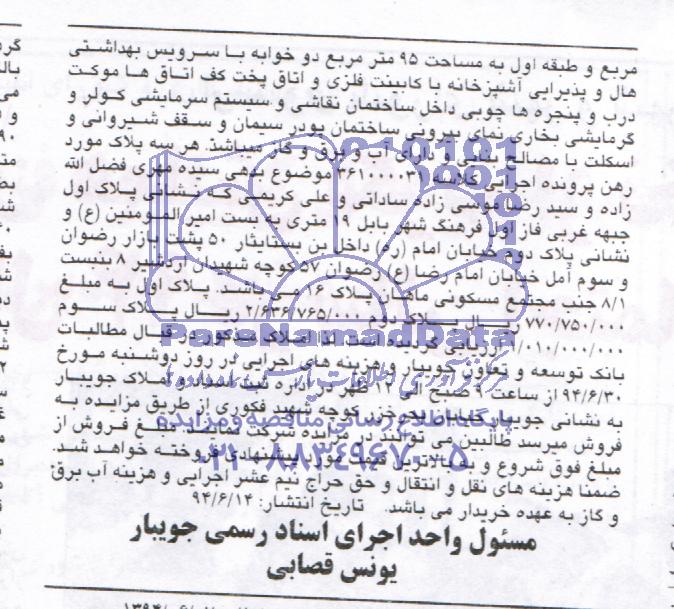 مربع و طبقه اول به مساحت ۹۵ متر مربع دو خوابه با سرویس بهداشتی
هال و پذیرایی آشپزخانه با کابینت فلزی و اتاق پخت کف اتاق ها موکت
درب و پنجره ها چوبی داخل ساختمان نقاشی و سیستم سرمایشی کولر و
گرمایشی بخاری نمای بیرونی ساختمان پودر سیمان و سقف شیروانی و
اسکلت با مصالح بنایی و دارای آب و برق و گاز میباشد. هر سه پلاک مورد
رهن پرونده اجرایی کلاسه موضوع بدهی سیده مهری فضل الله
زاده و سید رضا موسی زاده ساداتی و علی کریمی که نشانی پلاک اول
جبهه غربی فاز اول فرهنگ شهر بابل ۱۹ متری به بست امیر المومنین (ع) و
نشانی پلاک دوم خیابان امام (ره) داخل بن بست ایثار ۵۰ پشت بازار رضوان
و سوم آمل خیابان امام رضا (ع) رضوان ۵۷ کوچه شهیدان اردشیر ۸ بنبست
۸/۱ جنب مجتمع مسکونی ماهان پلاک ۱۶ می باشد. پلاک اول به مبلغ
۷۷۰/۷۵۰/۰۰۰ ریال پلاک دوم ۲/۶۳۶/۷۶۵/۰۰۰ ریال پلاک سوم
ارزیابی گردیده است لذا املاک مذکور در قبال مطالبات
بانک توسعه و تعاون جویبار و هزینه های اجرایی در روز دوشنبه مورخ
۹۴/۶/۳۰ از ساعت ۹ صبح الی ۱۲ ظهر در اداره ثبت اسناد و املاک جویبار
به نشانی جویبار خیابان بحر خزر کوچه شهید فکوری از طریق مزایده به
فروش میرسد طالبین می توانند در مزایده شرکت نمایند. مبلغ فروش از
مبلغ فوق شروع و به بالاترین قیمت مورد پیشنهادی فروخته خواهد شد.
ضمنا هزینه های نقل و انتقال و حق حراج نیم عشر اجرایی و هزینه آب برق
و گاز به عهده خریدار می باشد. تاریخ انتشار: ۹۴/۶/۱۴
مسئول واحد اجرای اسناد رسمی جویبار
یونس قصابی
ParsNamadData
پایگاه اطلاع رسانی مناقصه و مزایده
۰۲۱-۸۸۳۴۹۶۷۰-۵